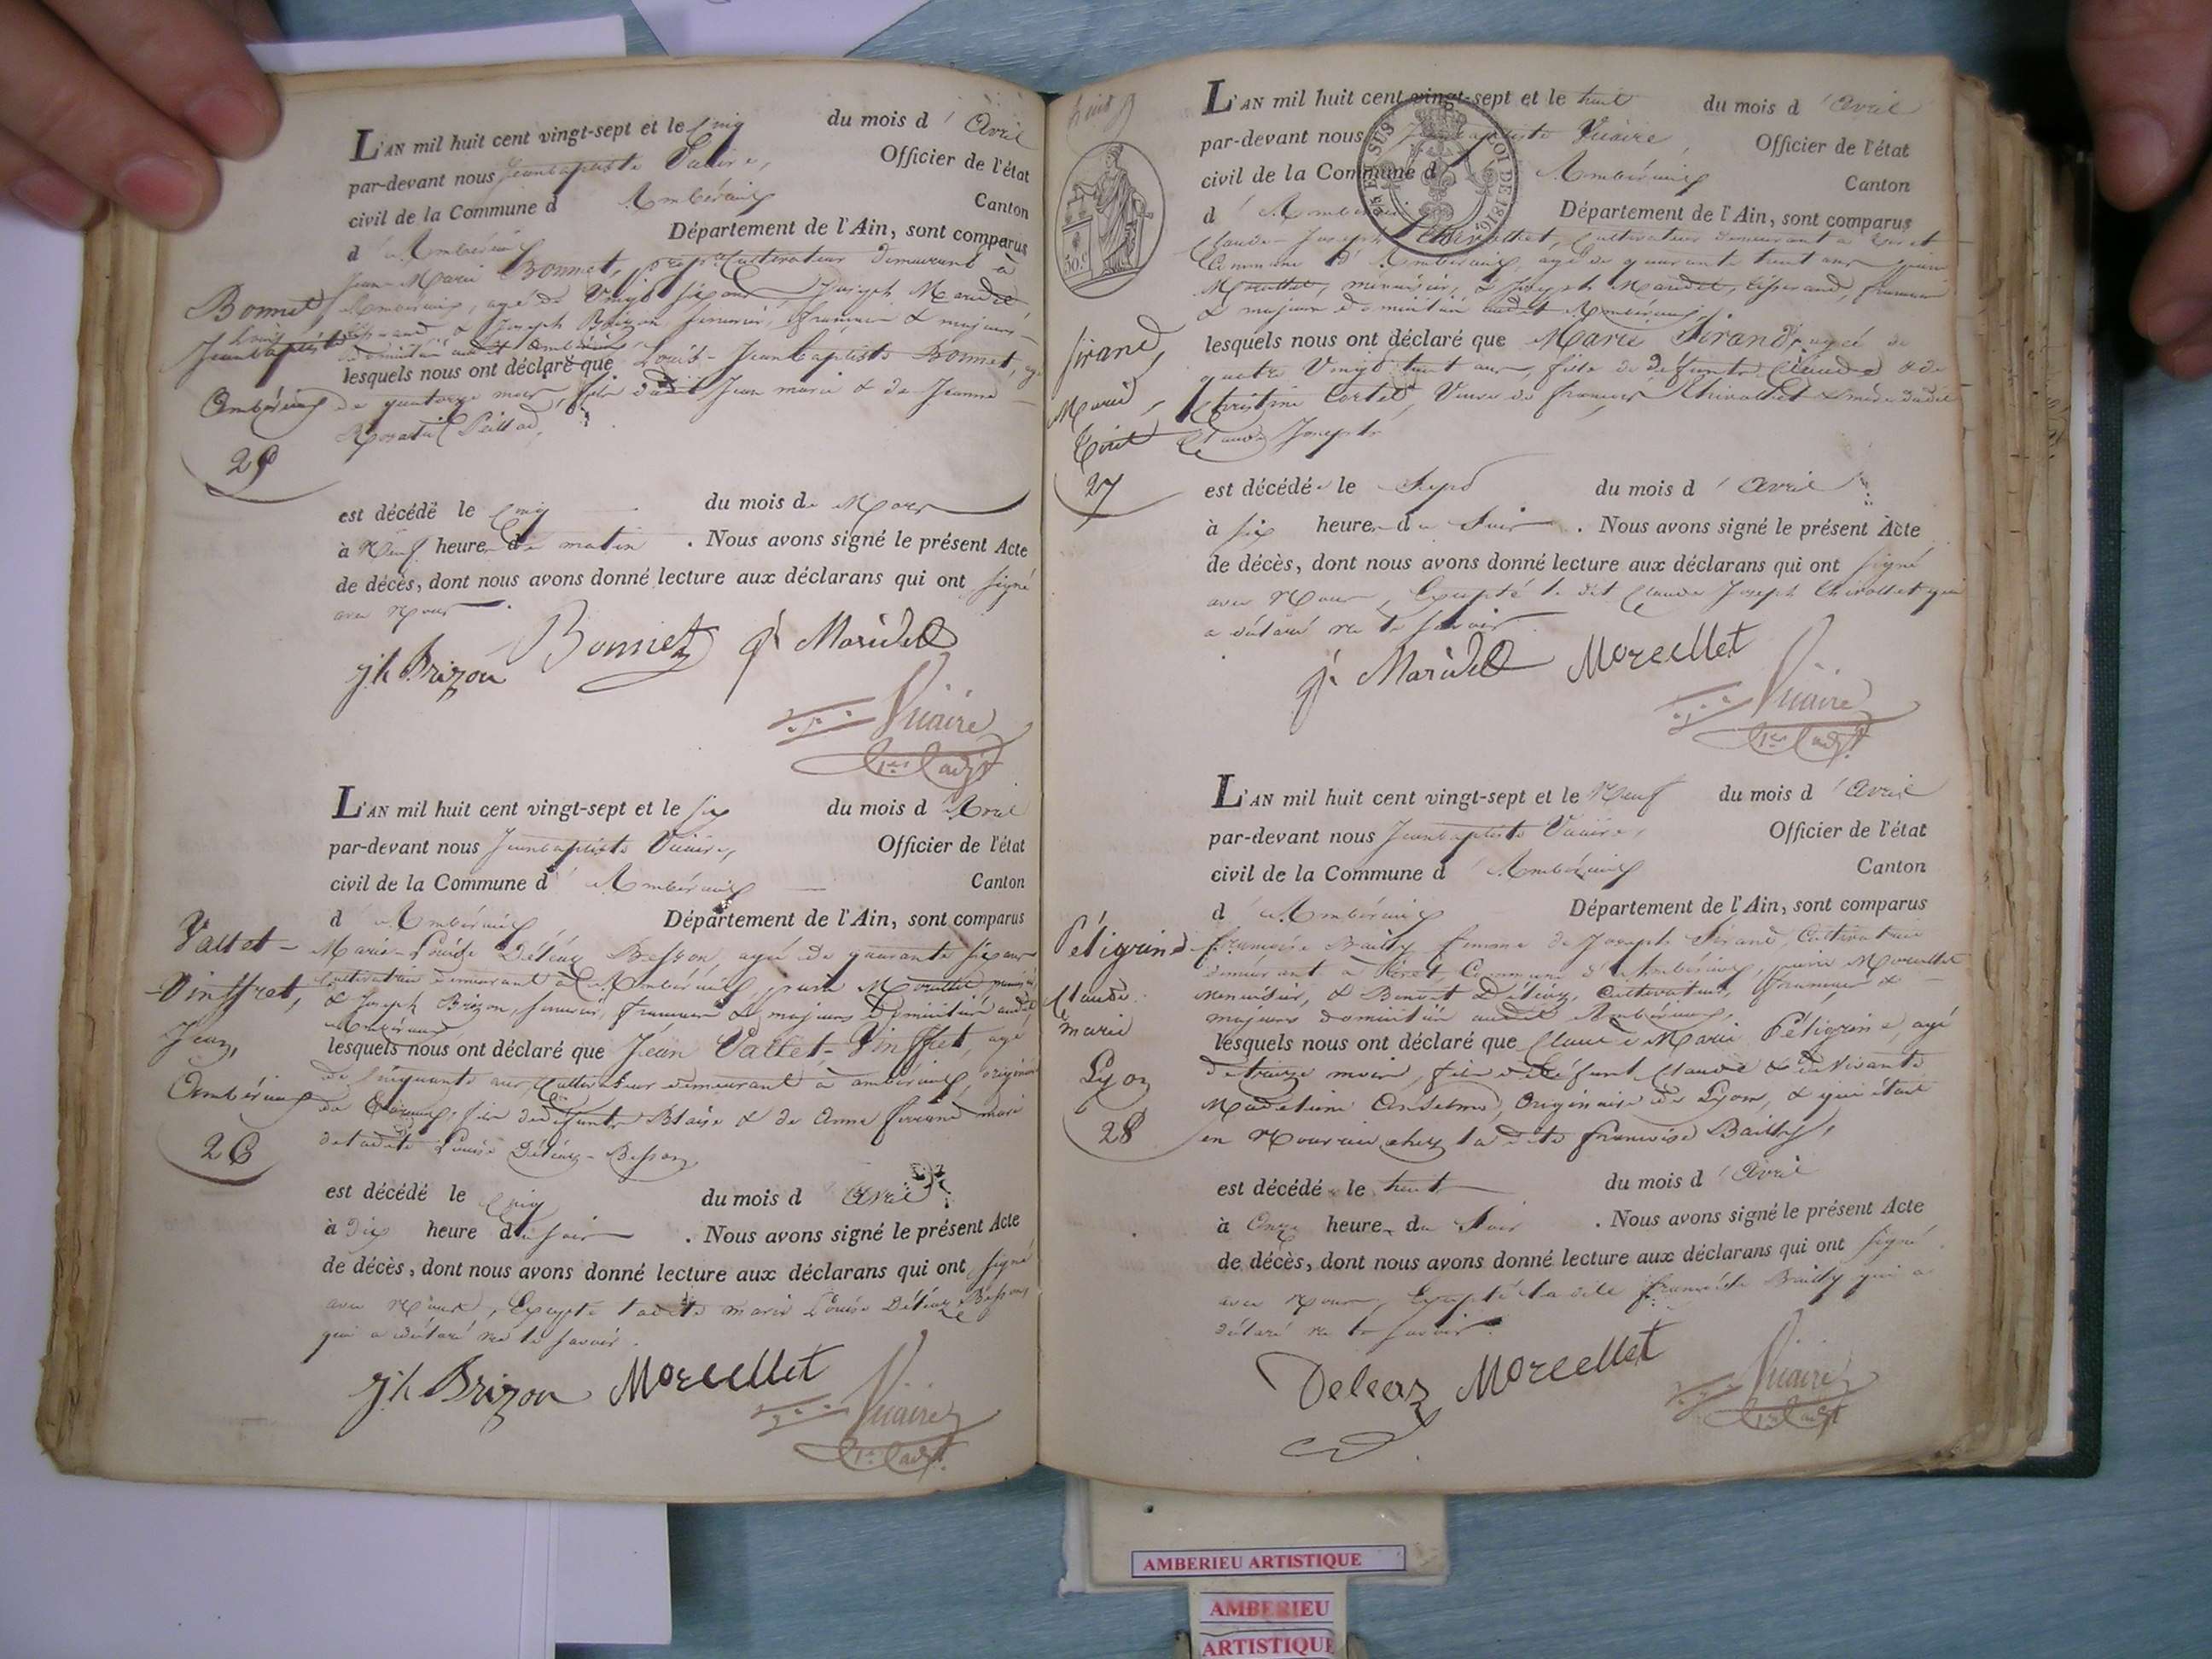 L'AN mil huit cent vingt-sept et le cinq du mois d'Avril
par-devant nous Jeanbaptiste Vicaire, Officier de l'état
civil de la Commune d Ambérieux Canton
d'Ambérieux Département de l'Ain, sont comparus
Jean-Marie Bonnet, propre Cultivateur demeurant à
Ambérieux, agé de Vingt six ans, Joseph Maridet
tisserand & Joseph Brizon, serrurier, français & majeurs
domiciliés audit Ambérieux
lesquels nous ont déclaré que Louis-Jeanbaptiste Bonnet, agé
de quatorze mois, fils dudit Jean marie & de Jeanne
Bonnet
Louis
Jeanbaptiste
Ambérieux
25
est décédé le cinq du mois de
à Neuf heure du matin. Nous avons signé le présent Acte
de décès, dont nous avons donné lecture aux déclarans qui ont signé
avec Nous
Jh Brizon Bonnet Jh Maridet
Vicaire
1er adjt
L'AN mil huit cent vingt-sept et le six du mois d'Avril
par-devant nous Jeanbaptiste Vicaire, Officier de l'état
civil de la Commune d'Ambérieux Canton
d'Ambérieux Département de l'Ain, sont comparus
Marie-Louise Déléaz Besson, agée de quarante six ans
cultivatrice demeurant à Ambérieux, Morcellet menuisier
& Joseph Brizon, serrurier, français & majeurs domiciliés audit
Ambérieux
lesquels nous ont déclaré que Jean Vallet-Vinffret, agé
de cinquante ans, Cultivateur demeurant à ambérieux, originaire
de fils de défunts Blaise & de Anne mari
de ladite Louise Déléaz-Besson
Vallet-
Vinffret,
Jean,
Ambérieux
26
est décédé le cinq du mois d'Avril
à dix heure du soir. Nous avons signé le présent Acte
de décès, dont nous avons donné lecture aux déclarans qui ont signé
avec Nous, Excepté ladite marie Louise Déléaz Besson,
qui a déclaré ne le savoir.
Jh Brizon Morcellet
Vicaire
1er adjt
L'AN mil huit cent vingt-sept et le huit du mois d'Avril
par-devant nous Jeanbaptiste Vicaire, Officier de l'état
civil de la Commune d Ambérieux Canton
d'Ambérieux Département de l'Ain, sont comparus
Claude-Joseph Chirollet, Cultivateur demeurant à Tiret
Commune d'Ambérieux, agé de quarante huit ans
Morcellet, menuisier, & Joseph Maridet, tisserand, français
& majeurs domiciliés audit Ambérieux
lesquels nous ont déclaré que Marie Sirand, agée de
quatre Vingt huit ans, fille de défunts Claude & de
Christine Cortel, Veuve de françois Chirollet & mère dudit
Claude Joseph
50 c
LOI DE 1816
Sirand,
Marie,
Tiret
27
est décédée le Sept du mois d'Avril
à six heure du Soir. Nous avons signé le présent Acte
de décès, dont nous avons donné lecture aux déclarans qui ont signé
avec Nous, Excepté le dit Claude Joseph Chirollet qui
a déclaré ne le savoir
Jh Maridet Morcellet
Vicaire
1er adjt
L'AN mil huit cent vingt-sept et le Neuf du mois d'Avril
par-devant nous Jeanbaptiste Vicaire, Officier de l'état
civil de la Commune d'Ambérieux Canton
d'Ambérieux Département de l'Ain, sont comparus
françoise Bailly femme de Joseph Sirand, Cultivatrice
demeurant à Tiret Commune d'Ambérieux, Morcellet
menuisier, & Benoit Déléaz, Cultivateur, français &
majeurs domiciliés audit Ambérieux,
lesquels nous ont déclaré que Claude Marie Péligrine, agé
de treize mois, fils de défunt Claude & de Vivante
Madelaine Anselme, Originaire de Lyon, & qui était
en Nourrice chez ladite françoise Bailly,
Péligrine
Claude
marie
Lyon
28
est décédé le huit du mois d'Avril
à Onze heure du Soir. Nous avons signé le présent Acte
de décès, dont nous avons donné lecture aux déclarans qui ont signé
avec Nous, Excepté ladite françoise Bailly qui a
déclaré ne le savoir.
Deleaz Morcellet
Vicaire
1er adjt
AMBERIEU ARTISTIQUE
AMBERIEU
ARTISTIQUE